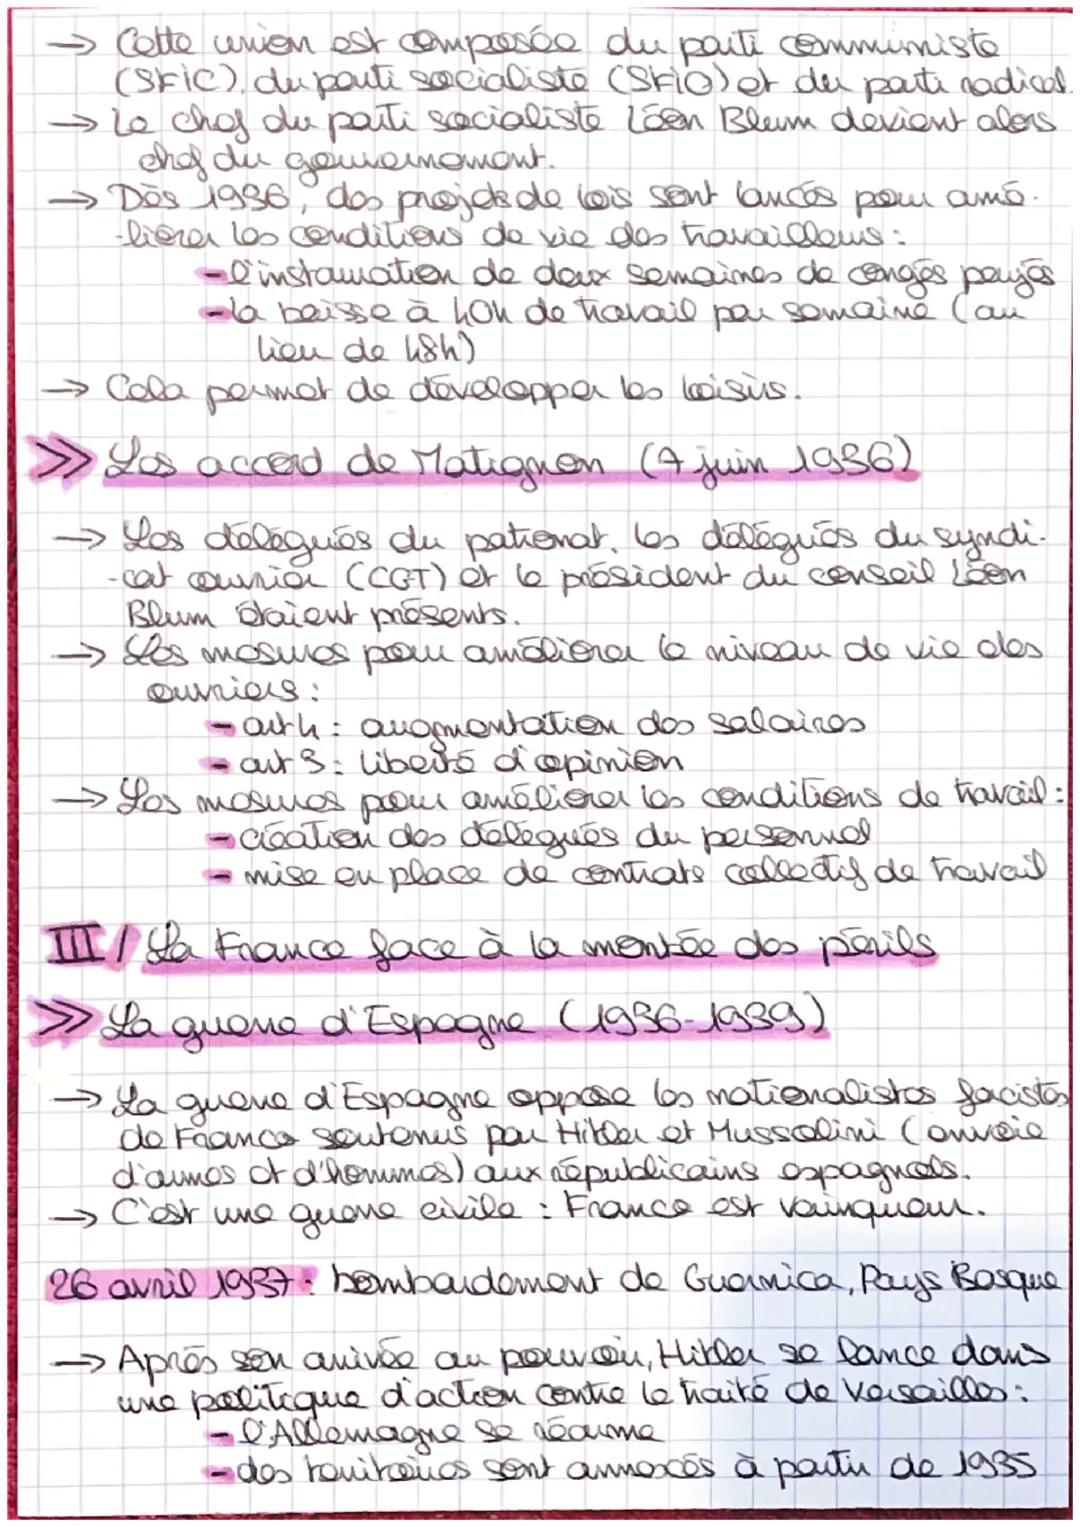 → Cette union est composée du parti communiste
(SFIC), du parti socialiste (SFIO) et du parti radical.
→ Le chef du parti socialiste Léon Blum devient alors
chef du gouvernement.
→ Dès 1936, des projets de lois sont lancés pour amé-
-liorer les conditions de vie des travailleurs :
- l'instauration de deux semaines de congés payés
- la baisse à 40h de travail par semaine (au
lieu de 48h)
→ Cela permet de développer les loisirs.
>> Les accord de Matignon (7 juin 1936)
→ Les délégués du patronat, les délégués du syndi-
-cat ouvrier (CGT) et le président du conseil Léon
Blum étaient présents.
→ Les mesures pour améliorer le niveau de vie des
ouvriers :
- art 4 : augmentation des salaires
- art 3 : liberté d'opinion
→ Les mesures pour améliorer les conditions de travail :
- création des délégués du personnel
- mise en place de contrats collectifs de travail
III / La France face à la montée des périls
>> La guerre d'Espagne (1936-1939)
→ La guerre d'Espagne oppose les nationalistes facistes
de Franco soutenus par Hitler et Mussolini (envoie
d'armes et d'hommes) aux républicains espagnols.
→ C'est une guerre civile : Franco est vainqueur.
26 avril 1937 : bombardement de Guernica, Pays Basque
→ Après son arrivée au pouvoir, Hitler se lance dans
une politique d'action contre le traité de Versailles :
- l'Allemagne se réarme
- des territoires sont annexés à partir de 1935